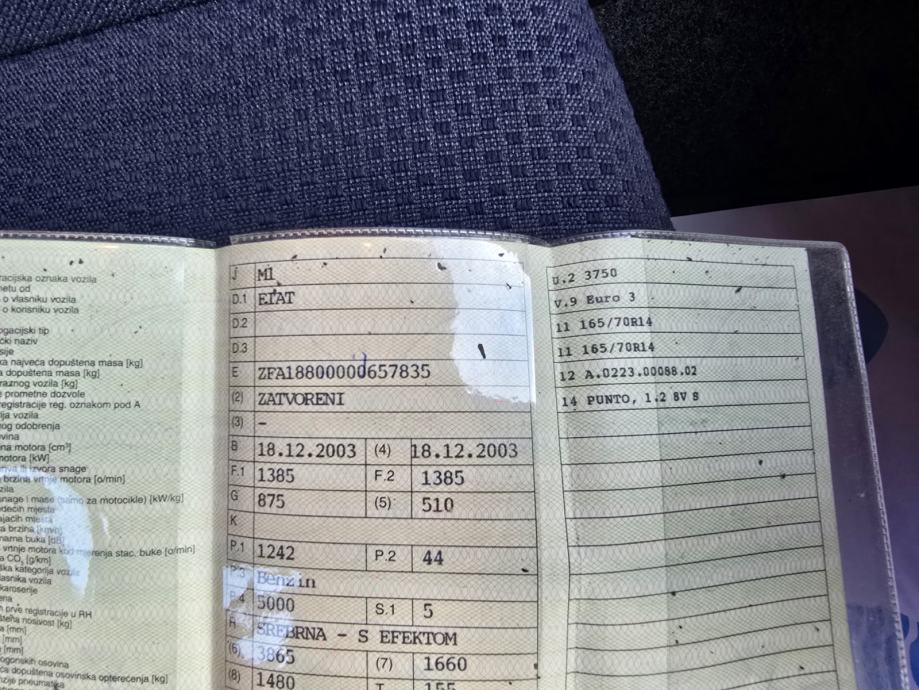 racijska oznaka vozila
o vlasniku vozila
o korisniku vozila
ogacijski tip
čki naziv
sije
ka najveća dopuštena masa [kg]
a dopuštena masa [kg]
raznog vozila [kg]
e prometne dozvole
registracije reg. oznakom pod A
lja vozila
nog odobrenja
ovina
na motora [cm³]
motora [kW]
iva ili izvora snage
brzina vrtnje motora [o/min]
zila
snage i mase (samo za motocikle) [kW/kg]
dećih mjesta
ajaćih mjesta
a brzina [km/h]
narna buka [dB]
vrtnje motora kod mjerenja stac. buke [o/min]
a CO₂ [g/km]
ška kategorija vozila
lasnika vozila
karoserije
ena
n prve registracije u RH
štena nosivost [kg]
a [mm]
[mm]
[mm]
ogonskih osovina
ća dopuštena osovinska opterećenja [kg]
zije pneumatika
J M1
D.1 FIAT
D.2
D.3
E ZFA18800000657835
(2) ZATVORENI
(3) –
B 18.12.2003 (4) 18.12.2003
F.1 1385 F.2 1385
G 875 (5) 510
K
P.1 1242 P.2 44
P.3 Benzin
P.4 5000 S.1 5
R SREBRNA - S EFEKTOM
(6) 3865 (7) 1660
(8) 1480 T 155
U.2 3750
V.9 Euro 3
11 165/70R14
11 165/70R14
12 A.0223.00088.02
14 PUNTO, 1.2 8V S